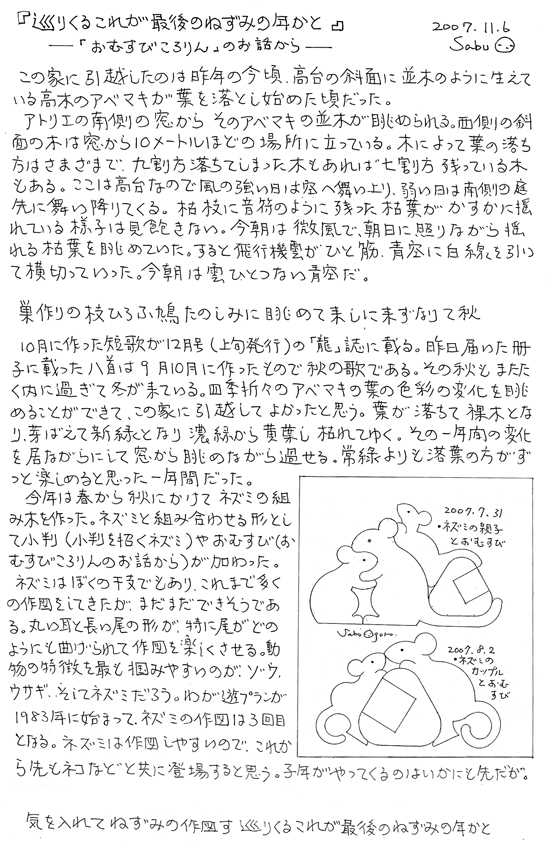 『巡りくるこれが最後のねずみの年かと』
2007.11.6
―「おむすびころりん」のお話から―
Sabu
この家に引越したのは昨年の今頃、高台の斜面に並木のように生えて
いる高木のアベマキが葉を落とし始めた頃だった。
アトリエの南側の窓からそのアベマキの並木が眺められる。西側の斜
面の木は窓から10メートルほどの場所に立っている。木によって葉の落ち
方はさまざまで、九割方落ちてしまった木もあれば七割方残っている木
もある。ここは高台なので風の強い日は空へ舞い上り、弱い日は南側の庭
先に舞い降りてくる。枯枝に音符のように残った枯葉がかすかに揺
れている様子は見飽きない。今朝は微風で、朝日に照りながら揺
れる枯葉を眺めていた。すると飛行機雲がひと筋、青空に白線を引い
て横切っていった。今朝は雲ひとつない青空だ。
巣作りの枝ひろふ鳩たのしみに眺めて来しに来ずなりて秋
10月に作った短歌が12月号(上旬発行)の「龍」誌に載る。昨日届いた冊
子に載った八首は9月10月に作ったもので秋の歌である。その秋もまたた
く内に過ぎて冬が来ている。四季折々のアベマキの葉の色彩の変化を眺
めることができて、この家に引越してよかったと思う。葉が落ちて裸木とな
り、芽ばえて新緑となり濃緑から黄葉し枯れてゆく。その一年間の変化
を居ながらにして窓から眺めながら過せる。常緑よりも落葉の方がず
っと楽しめると思った一年間だった。
今年は春から秋にかけてネズミの組
み木を作った。ネズミと組み合わせる形とし
て小判(小判を招くネズミ)やおむすび(お
むすびころりんのお話から)が加わった。
ネズミはぼくの干支でもあり、これまで多く
の作図をしてきたが、まだまだできそうであ
る。丸い耳と長い尾の形が、特に尾がどの
ようにも曲げられて作図を楽しくさせる。動
物の特徴を最も掴みやすいのが、ゾウ、
ウサギ、そしてネズミだろう。わが遊プランが
1983年に始まって、ネズミの作図は3回目
となる。ネズミは作図しやすいので、これか
ら先もネコなどと共に登場すると思う。子年がやってくるのはいかにも先だが。
2007.7.31
・ネズミの親子
とおむすび
Sabu Oguro.
2007.8.2
・ネズミの
カップル
とおむ
すび
気を入れてねずみの作図す巡りくるこれが最後のねずみの年かと